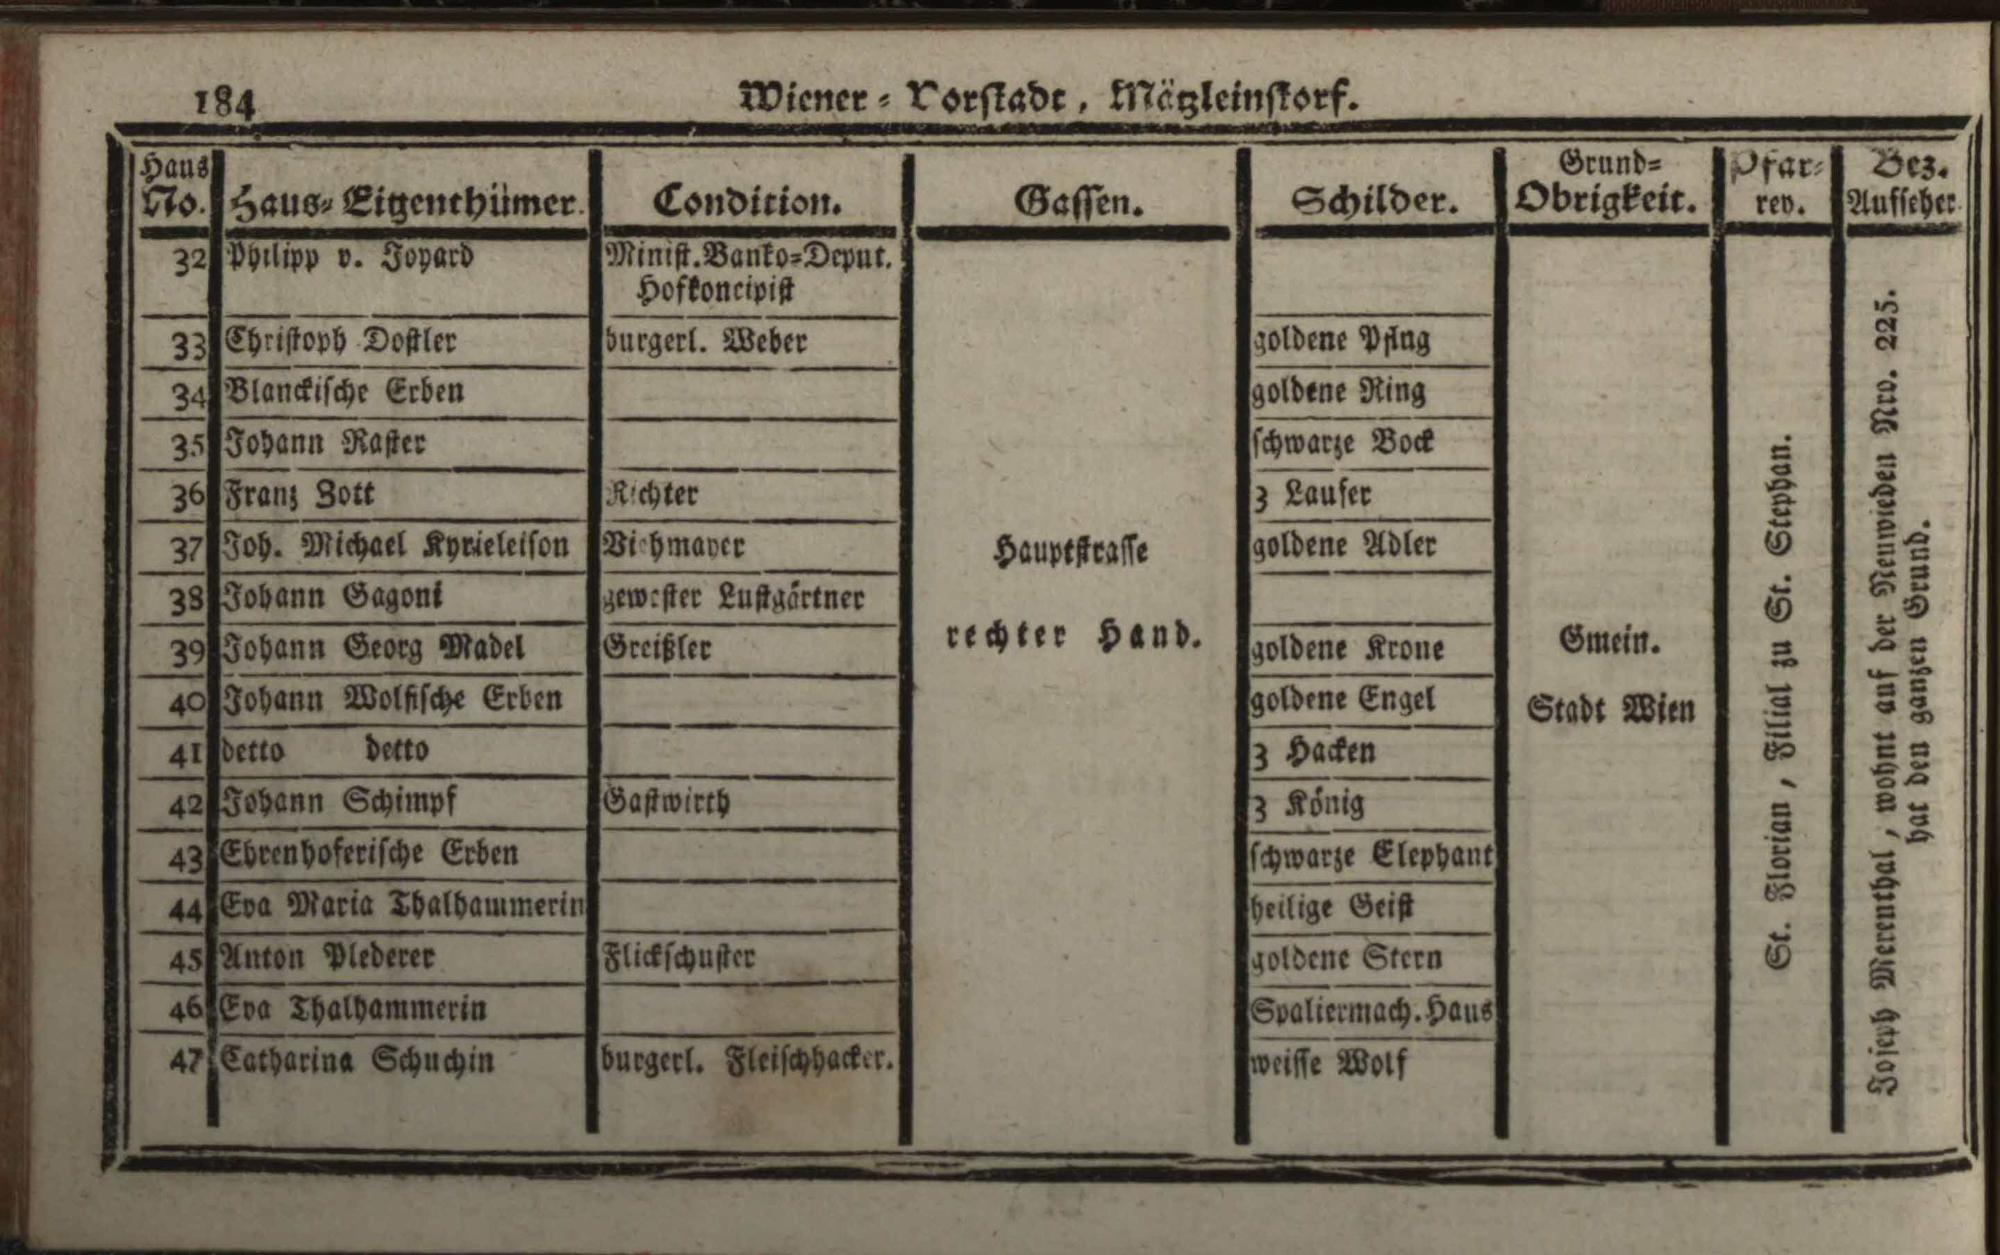 184
Wiener-Vorstadt, Mätzleinstorf.
Haus No. Haus-Eigenthümer. Condition. Gassen. Schilder. Grund-Obrigkeit. Pfar-rey. Bez. Aufseher.
32 Philipp v. Jopard Minist. Banko-Deput.
Hofkoncipist
33 Christoph Dostler burgerl. Weber goldene Pflug
34 Blanckische Erben goldene Ring
35 Johann Raster schwarze Bock
36 Franz Zott Richter 3 Laufer
37 Joh. Michael Kyrieleison Viehmayer goldene Adler
38 Johann Gagoni gewester Lustgärtner
39 Johann Georg Madel Greißler goldene Krone
40 Johann Wolfische Erben goldene Engel
41 detto detto 3 Hacken
42 Johann Schimpf Gastwirth 3 König
43 Ehrenhoferische Erben schwarze Elephant
44 Eva Maria Thalhammerin heilige Geist
45 Anton Plederer Flickschuster goldene Stern
46 Eva Thalhammerin Spaliermach. Haus
47 Catharina Schuchin burgerl. Fleischhacker. weisse Wolf
Hauptstrasse
rechter Hand.
Gmein.
Stadt Wien
St. Florian, Filial zu St. Stephan.
Joseph Merenthal, wohnt auf der Neuwieden Nro. 225.
hat den ganzen Grund.